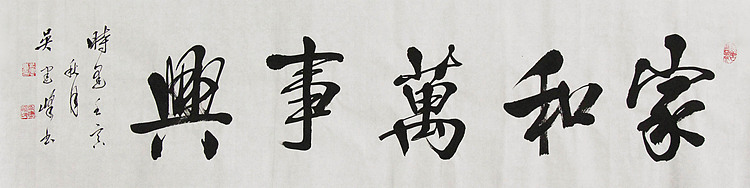 家和萬事興
時逢壬寅
秋月
吴峰书